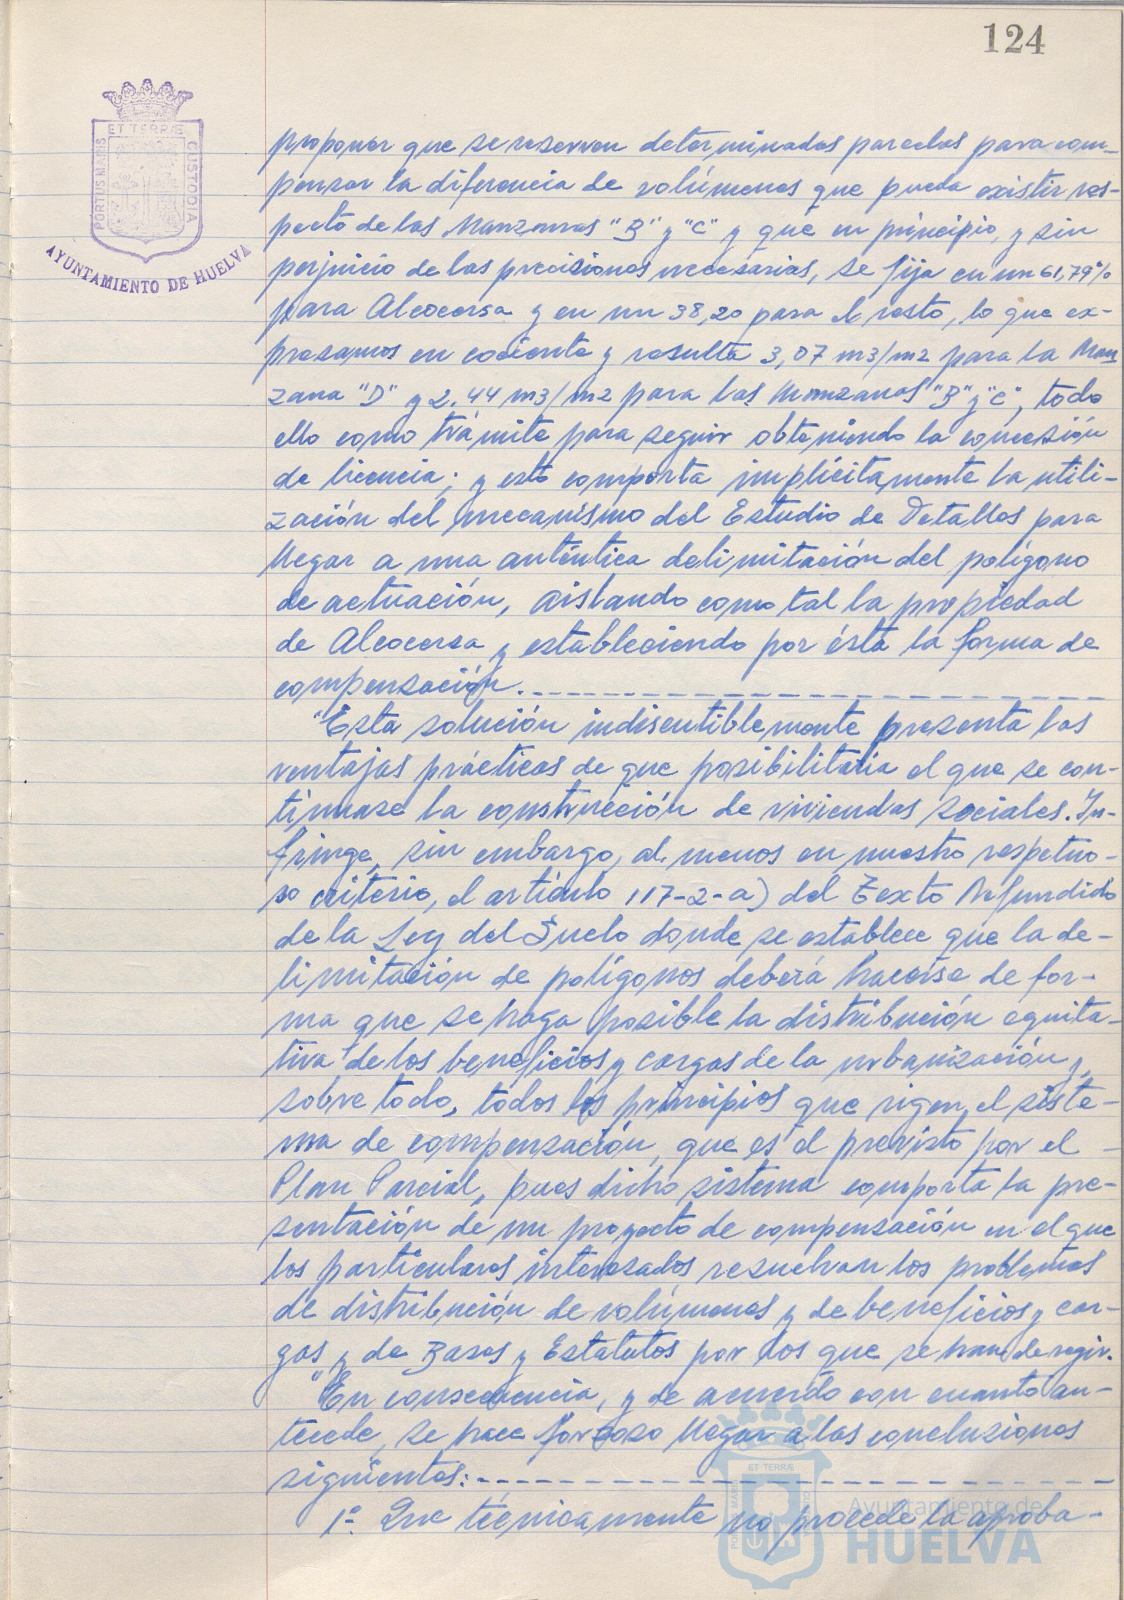 124
ET TERRÆ
PORTUS MARIS
CUSTODIA
AYUNTAMIENTO DE HUELVA
proponer que se reserven determinadas parcelas para com-
pensar la diferencia de volúmenes que pueda existir res-
pecto de las Manzanas "B" y "C" y que en principio, y sin
perjuicio de las precisiones necesarias, se fija en un 61,79%
para Alcocersa y en un 38,20 para el resto, lo que ex-
presamos en cociente y resulta 3,07 m3/m2 para la Man
zana "D" y 2,44 m3/m2 para las Manzanas "B" y "C", todo
ello como trámite para seguir obteniendo la concesión
de licencia; y esto comporta implícitamente la utili-
zación del mecanismo del Estudio de Detalles para
llegar a una auténtica delimitación del polígono
de actuación, aislando como tal la propiedad
de Alcocersa y estableciendo por ésta la forma de
compensación.
"Esta solución indiscutiblemente presenta las
ventajas prácticas de que posibilitaria el que se con-
tinuase la construcción de viviendas sociales. In-
fringe, sin embargo, al menos en nuestro respetuo-
so criterio, el artículo 117-2-a) del Texto Refundido
de la Ley del Suelo donde se establece que la de-
limitación de polígonos deberá hacerse de for-
ma que se haga posible la distribución equita-
tiva de los beneficios y cargas de la urbanización y,
sobre todo, todos los principios que rigen el siste-
ma de compensación, que es el previsto por el
Plan Parcial, pues dicho sistema comporta la pre-
sentación de un proyecto de compensación en el que
los particulares interesados resuelvan los problemas
de distribución de volúmenes y de beneficios y car-
gas y de Bases y Estatutos por los que se han de regir.
"En consecuencia, y de acuerdo con cuanto an-
tecede, se hace forzoso llegar a las conclusiones
siguientes:
1º. Que técnicamente no procede la aproba-
ET TERRÆ
Ayuntamiento de
HUELVA